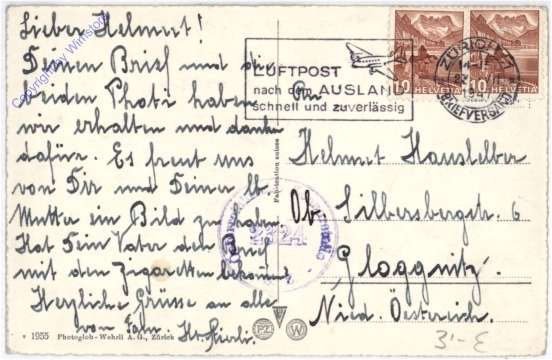 Lieber Helmut!
Deinen Brief und die
beiden Photi haben
wir erhalten und danke
dafür. Es freut uns
von Dir und Deiner lb.
Mutter ein Bild zu haben
Hat Dein Vater den Brief
mit den Zigaretten bekommen
Herzliche Grüsse an alle
von Fam.
1955 Photoglob-Wehrli A. G., Zürich
LUFTPOST
nach dem AUSLAND
schnell und zuverlässig
10 HELVETIA
10 HELVETIA
ZÜRICH
BRIEFVERSAND
An
Helmut Hauselber
Silbersbergstr. 6
Ob.
Gloggnitz
Nied. Österreich.
Fabrication suisse
PZ W
3'-E
Copyright by Winistorf